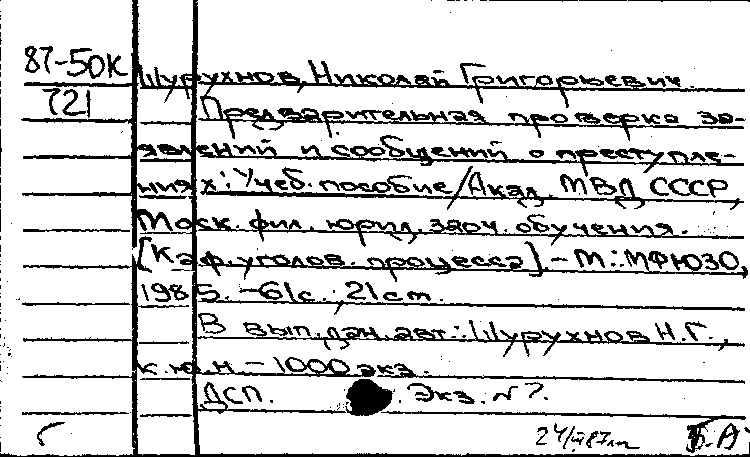 87-50К Шурухнов, Николай Григорьевич.
721 Предварительная проверка за-
явлений и сообщений о преступле-
ниях: Учеб. пособие/Акад. МВД СССР,
Моск. фил. юрид. заоч. обучения.
[Каф. уголов. процесса]. - М.: МФЮЗО,
1985. - 61с.; 21см.
В вып. дан. авт.: Шурухнов Н.Г.,
к.ю.н. - 1000 экз.
ДСП. . Экз. № 7.
Б.А